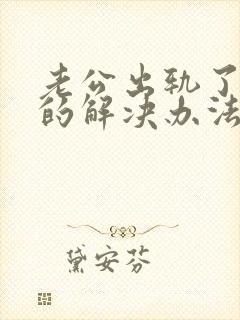 老公出轨了
的解决办法
黛安芬